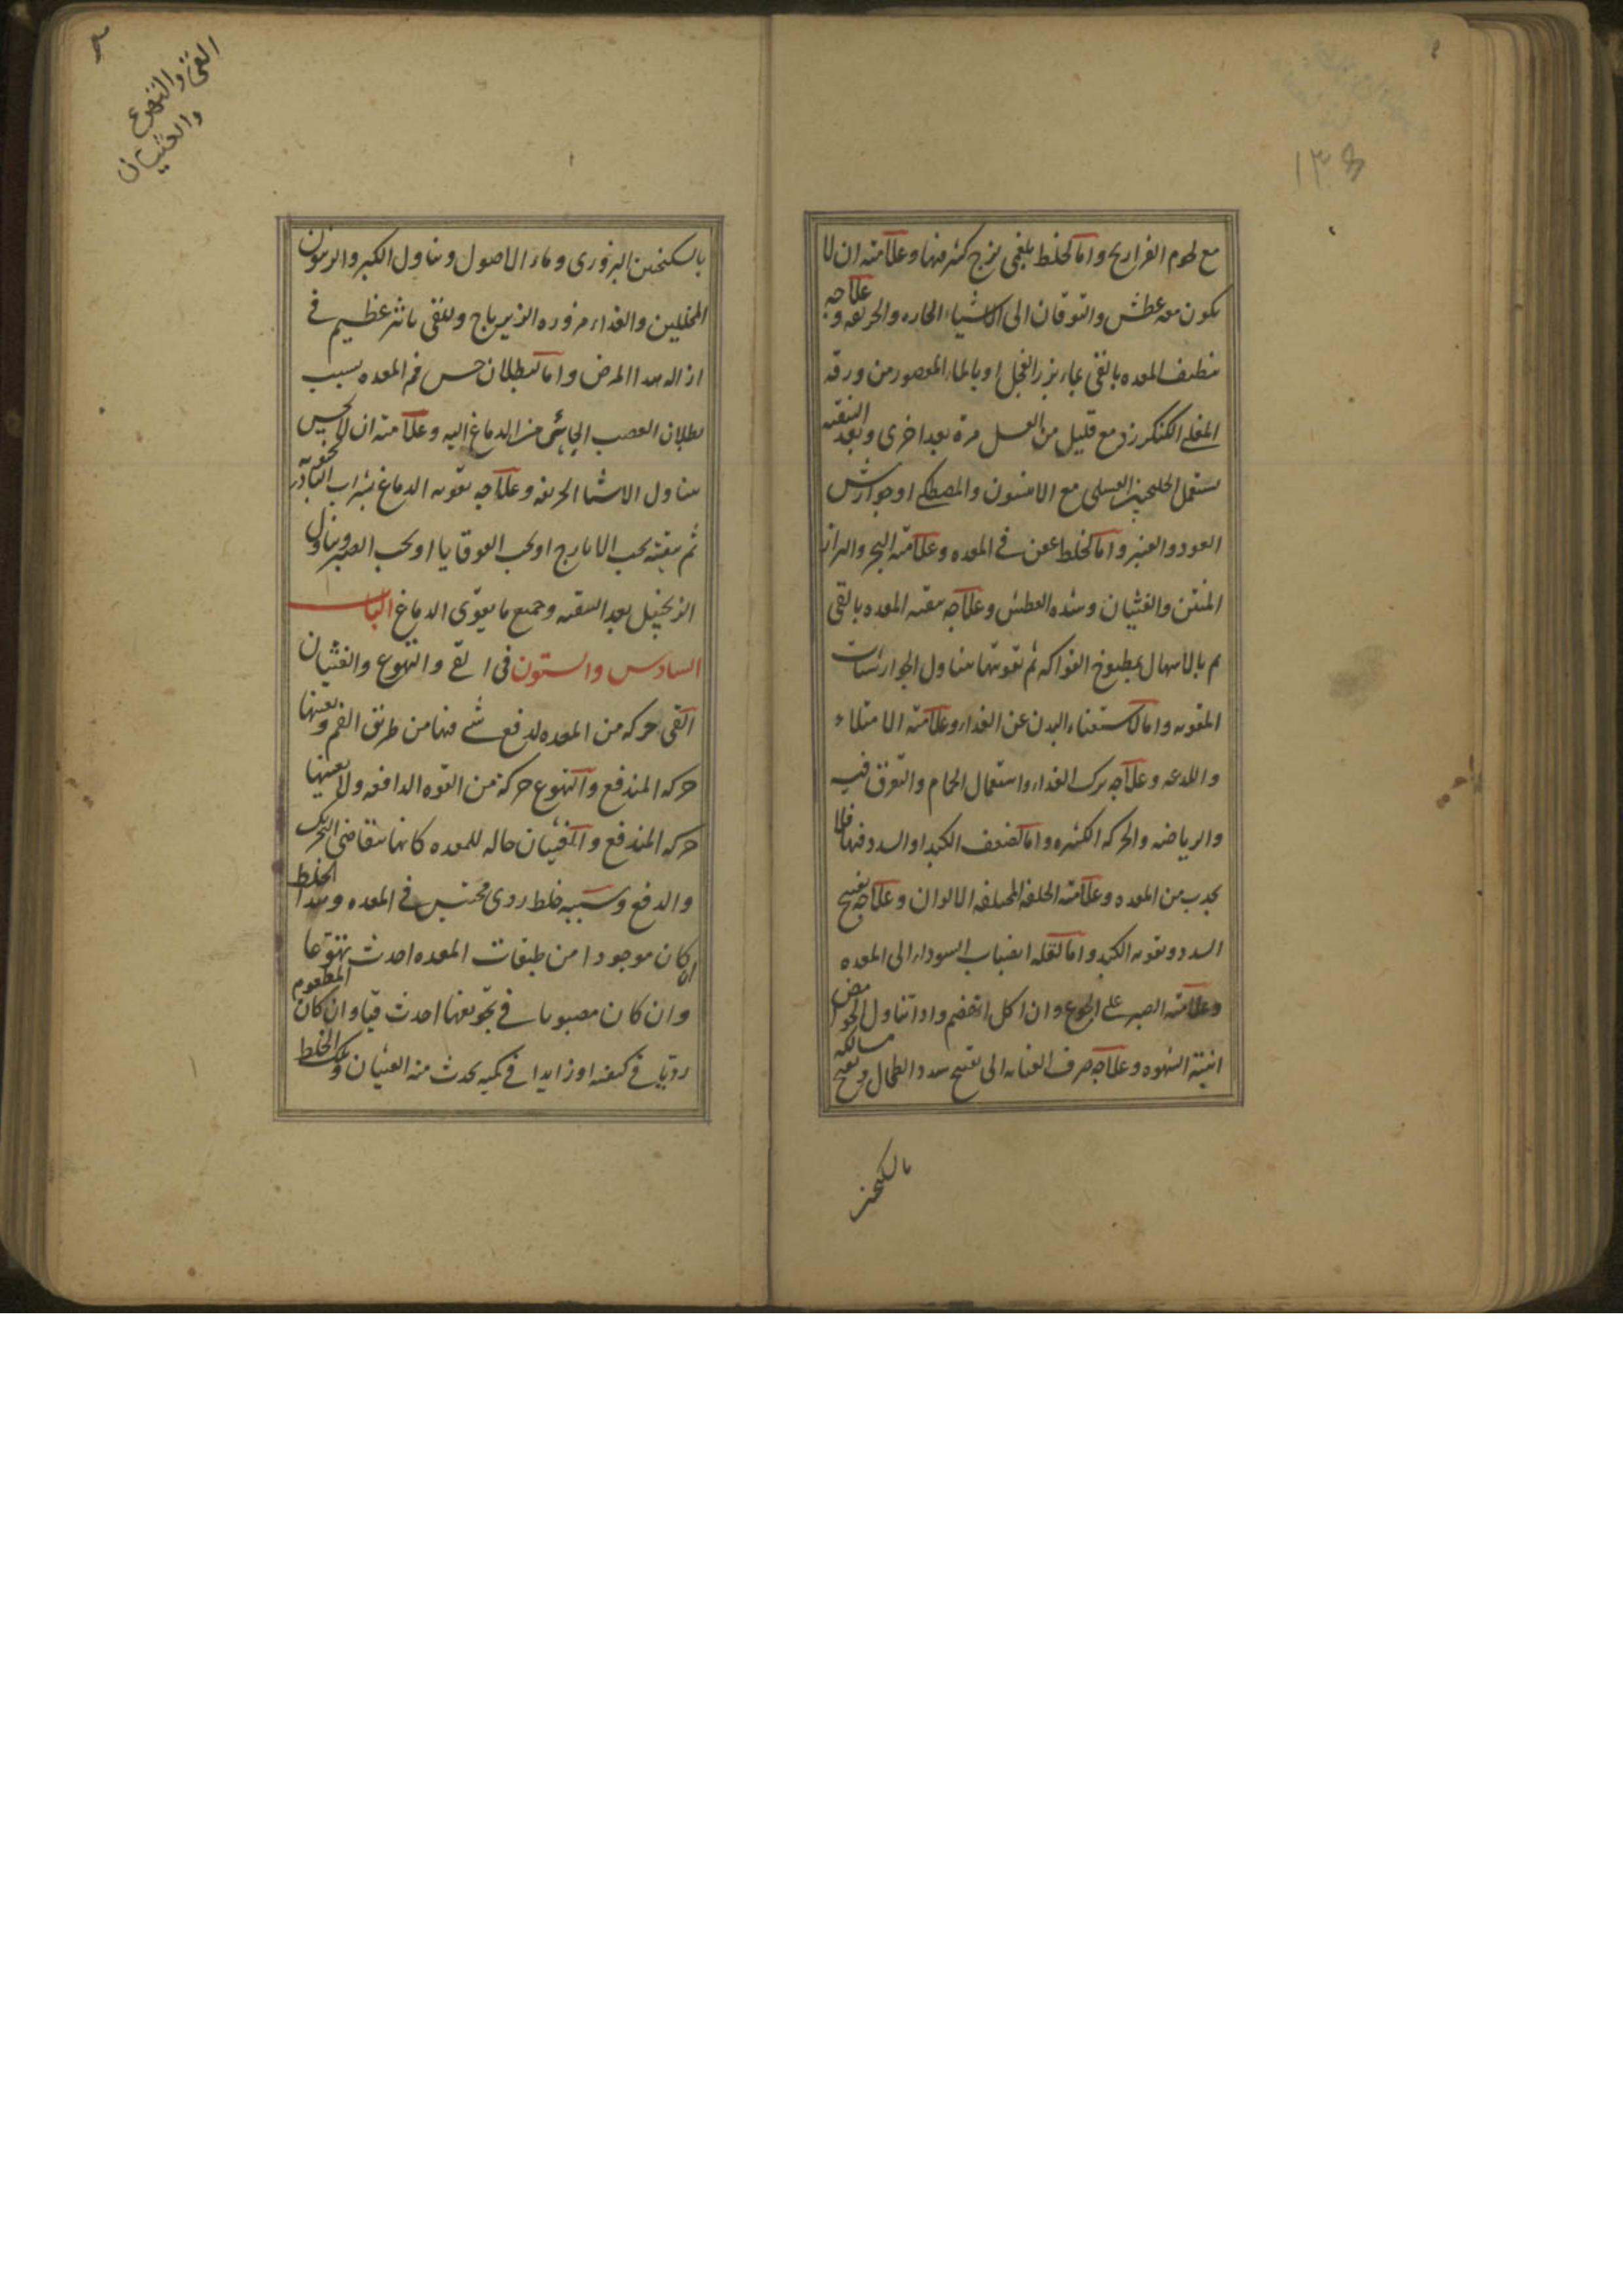 ١٣٤
مع لحوم الفراريج واما لخلط بلغمى لزج كثير فيها وعلامته ان لا
يكون معه عطش والتوقان الى الاشياء الحاره والحريفه وعلاجه
تنظيف المعده بالقى بماء بزر الفجل او بالماء المعصور من ورقه
المغلى الكنكرزد مع قليل من العسل مرة بعد اخرى وبعد التنقيه
يستعمل الجلنجبين العسلى مع الانيسون والمصطكى او جوارش
العود والعنبر واما لخلط عفن فى المعده وعلامته البخر والبراز
المنتن والغثيان وشده العطش وعلاجه تنقيه المعده بالقى
ثم بالاسهال بمطبوخ الفواكه ثم تقويتها بتناول الجوارشات
المقويه واما لاستغناء البدن عن الغداء وعلامته الامتلاء
والدعه وعلاجه ترك الغداء واستعمال الحمام والتعرق فيه
والرياضه والحركه الكثيره واما لضعف الكبد او السدد فيها فلا
يجدب من المعده وعلامته الخلفه المختلفه الالوان وعلاجه تفتيح
السدد وتقويه الكبد واما لقله انصباب السوداء الى المعده
وعلامته الصبر على الجوع وان اكل انهضم وادا تناول الحوامض
انبثه الشهوه وعلاجه صرف العنايه الى تفتيح سدد الطحال وتفتيح مسالكه
بالسكنجبين
القئ والتهوع
والغثيان
بالسكنجبين البزورى وماء الاصول وتناول الكبر والزيتون
المخللين والغداء مزوره الزيرباج وللقى تاثير عظيم فى
ازاله هدا المرض واما لبطلان حس فم المعده بسبب
بطلان العصب الجائى من الدماغ اليه وعلامته ان لا يحس بحموضه
بتناول الاشيا الحريفه وعلاجه تقويه الدماغ بشراب البادر
ثم تنقيته بحب الايارج او بحب القوقايا او بحب الصبر وتناول
الزنجبيل بعد التنقيه وجميع ما يقوّى الدماغ الباب
السادس والستون فى القے والتهوع والغثيان
القى حركه من المعده لدفع شے فيها من طريق الفم وتعينها
حركه المندفع والتهوع حركة من القوه الدافعه ولا تعينها
حركه المندفع والغثيان حاله للمعده كانها تتقاضى التحريك
والدفع وسببه خلط ردى محتبس فى المعده وهدا الخلط
ان كان موجودا من طبقات المعده احدث تهوّعا
وان كان مصبوبا فى تجويفها احدث قيا وان كان المطعوم
رديّا فى كيفيته او زايدا فى كميه يحدث منه الغثيان وتلك الخلط